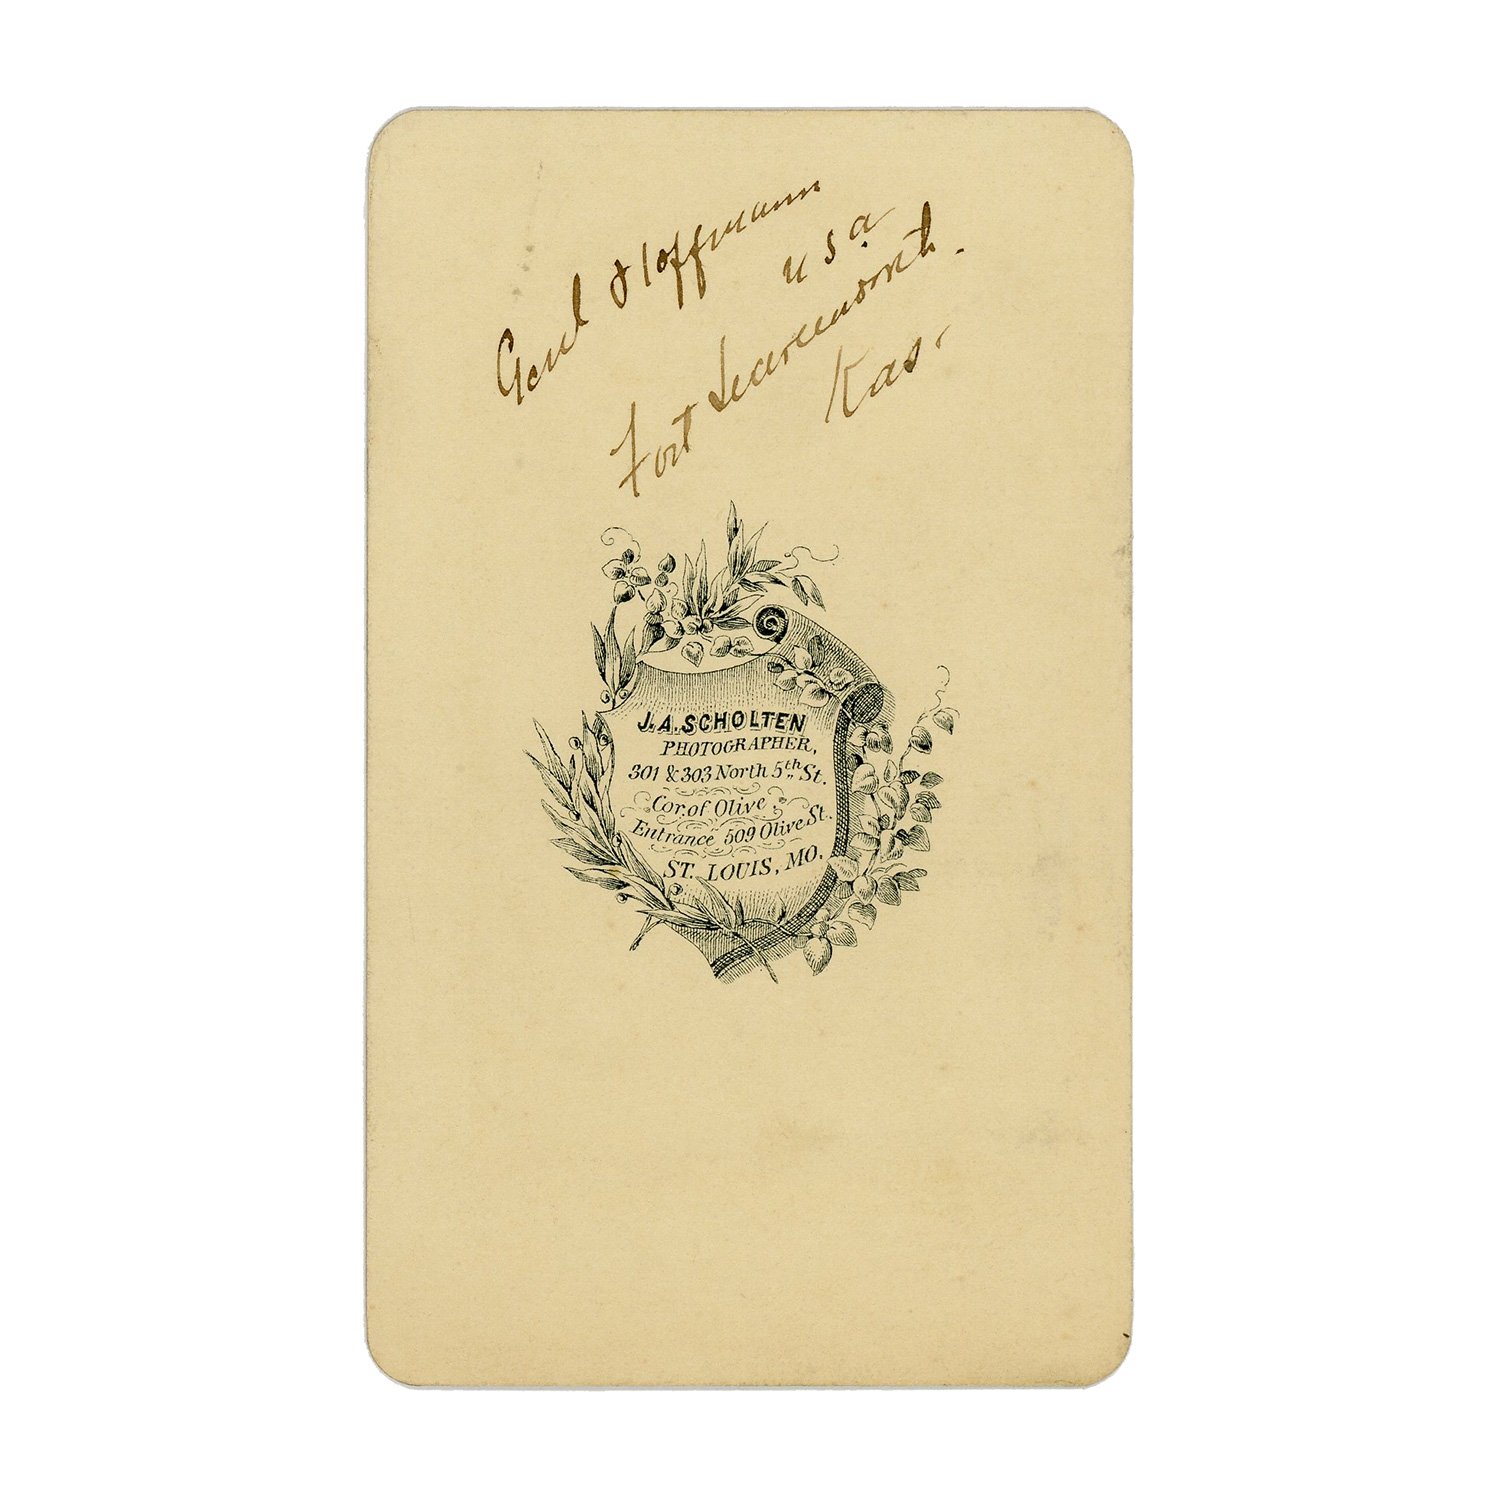 Genl Hoffmann
U S A
Fort Leavenworth.
Kas.
J. A. SCHOLTEN
PHOTOGRAPHER,
301 & 303 North 5th St.
Cor. of Olive,
Entrance 509 Olive St.
ST. LOUIS, MO.